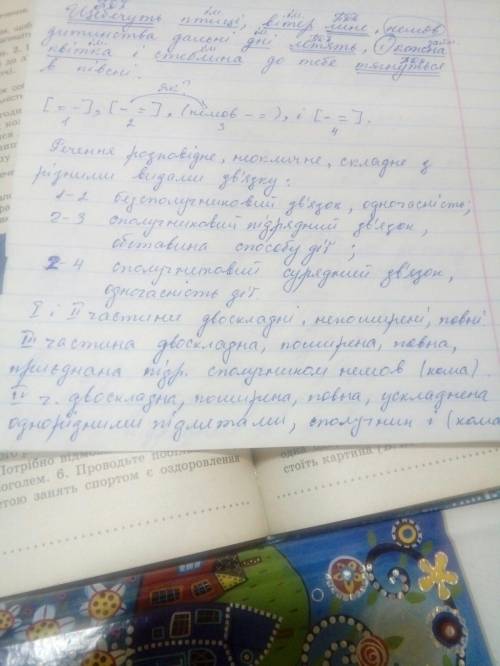 Щебечуть птиці, вітер лине, немов
дитинства дальні дні летять, і кожна
квітка і стеблина до тебе тягнуться
в півсні.
Як?
[= -], [- =], (немов - =), і [- =].
1 2 3 4
Речення розповідне, неокличне, складне з
різними видами зв'язку:
1-2 безсполучниковий зв'язок, одночасність;
2-3 сполучниковий підрядний зв'язок,
обставина способу дії;
2-4 сполучниковий сурядний зв'язок,
одночасність дії
I і II частини двоскладні, непоширені, повні
III частина двоскладна, поширена, повна,
приєднана підр. сполучником немов (кома).
ч. двоскладна, поширена, повна, ускладнена
однорідними підметами, сполучник і (кома
Потрібно
поголем. 6. Проводьте
тою занять спортом є оздоровлення
одна
стоїть картина